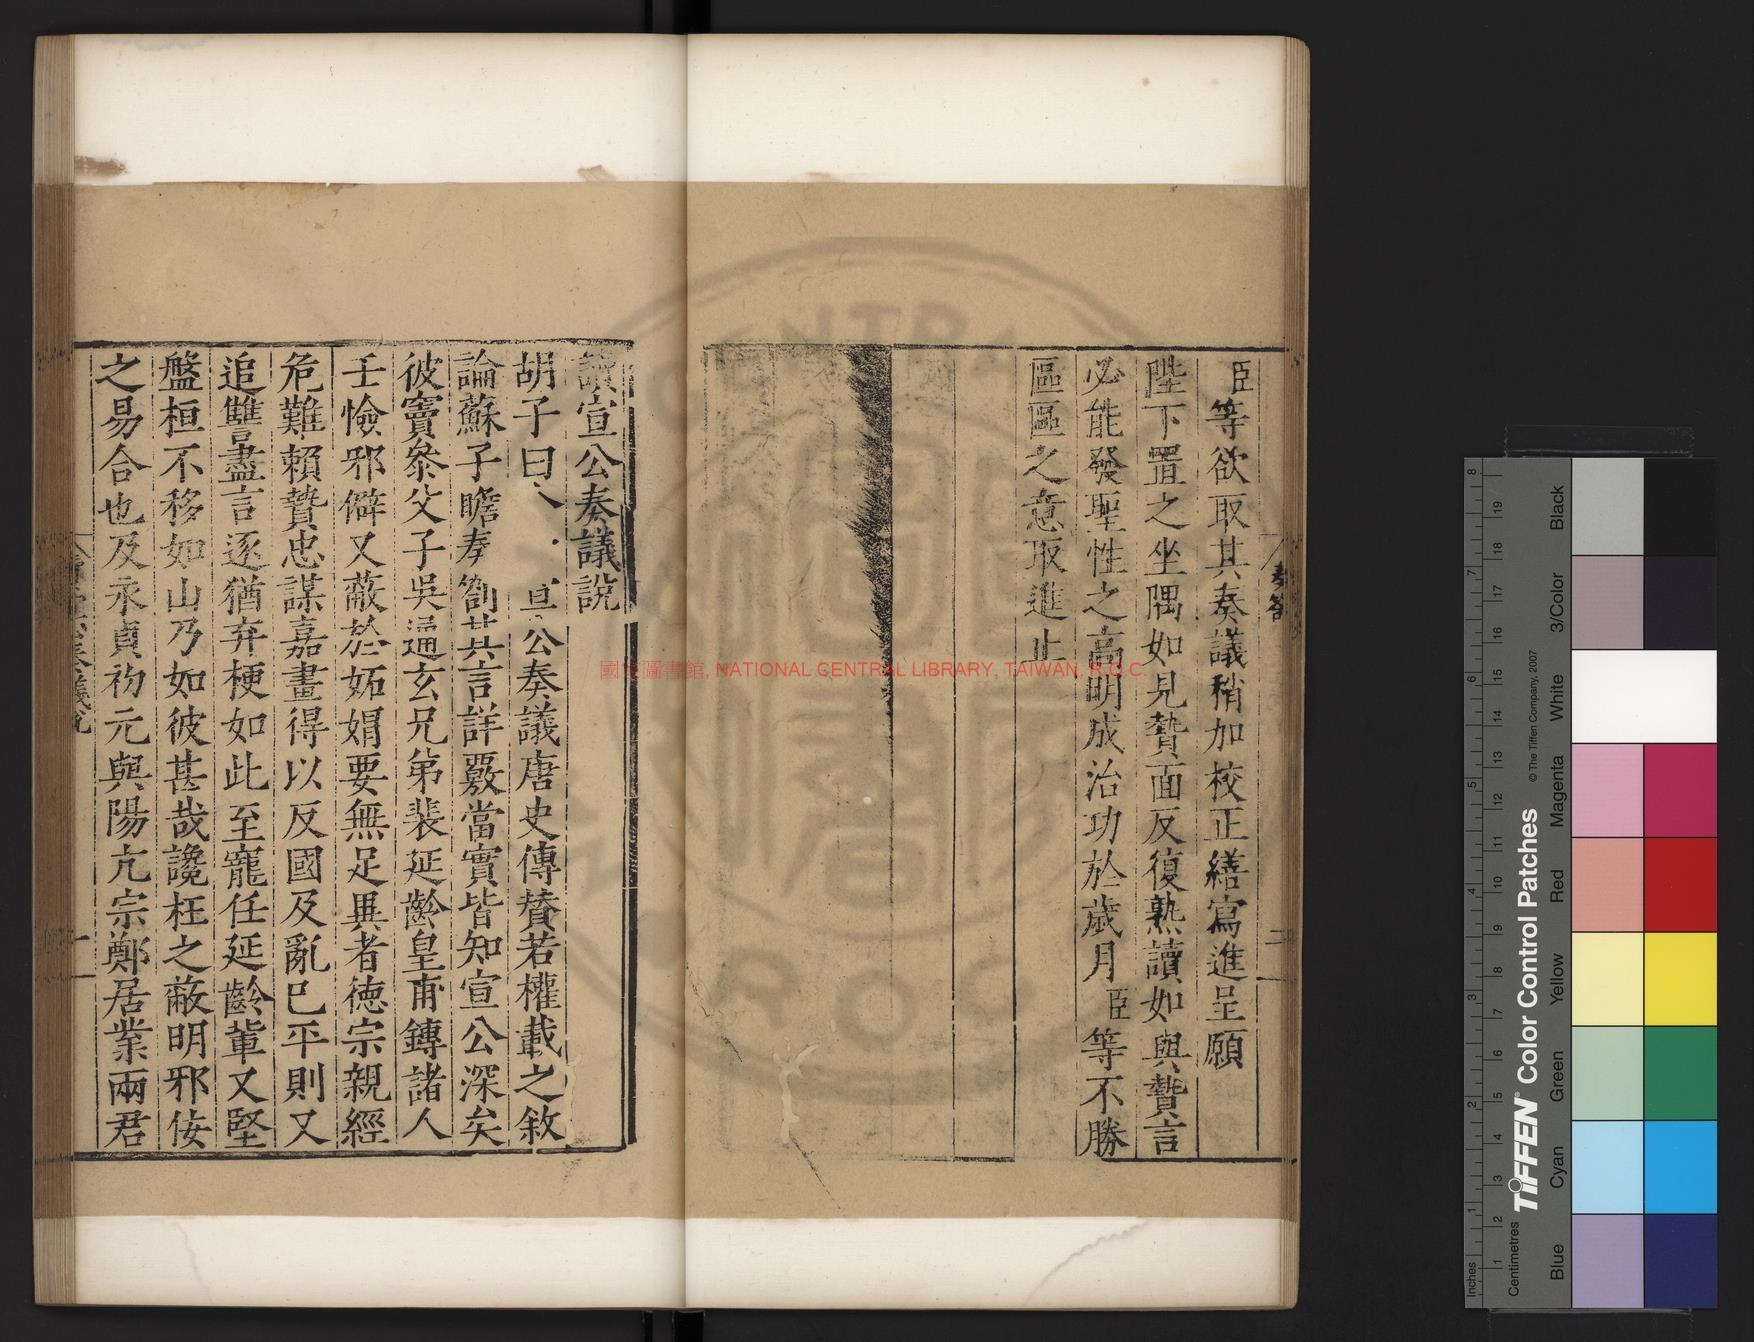 臣等欲取其奏議稍加校正繕寫進呈願
陛下置之坐隅如見贄面反復熟讀如與贄言
必能發聖性之高明成治功於歲月臣等不勝
區區之意取進止
讀宣公奏議說
胡子曰宣公奏議唐史傳贊若權載之敘
論蘇子瞻奏劄其言詳覈當實皆知宣公深矣
彼竇參父子吳通玄兄弟裴延齡皇甫鎛諸人
壬憸邪僻又蔽於妬媢要無足異者德宗親經
危難賴贄忠謀嘉畫得以反國及亂已平則又
追讐盡言逐猶弃梗如此至寵任延齡輩又堅
盤桓不移如山乃如彼甚哉讒枉之蔽明邪佞
之易合也及永貞初元與陽亢宗鄭居業兩君
奏劄
三
一
國家圖書館, NATIONAL CENTRAL LIBRARY, TAIWAN, R.O.C.
Inches
Centimetres
TIFFEN® Color Control Patches
© The Tiffen Company, 2007
Blue
Cyan
Green
Yellow
Red
Magenta
White
3/Color
Black